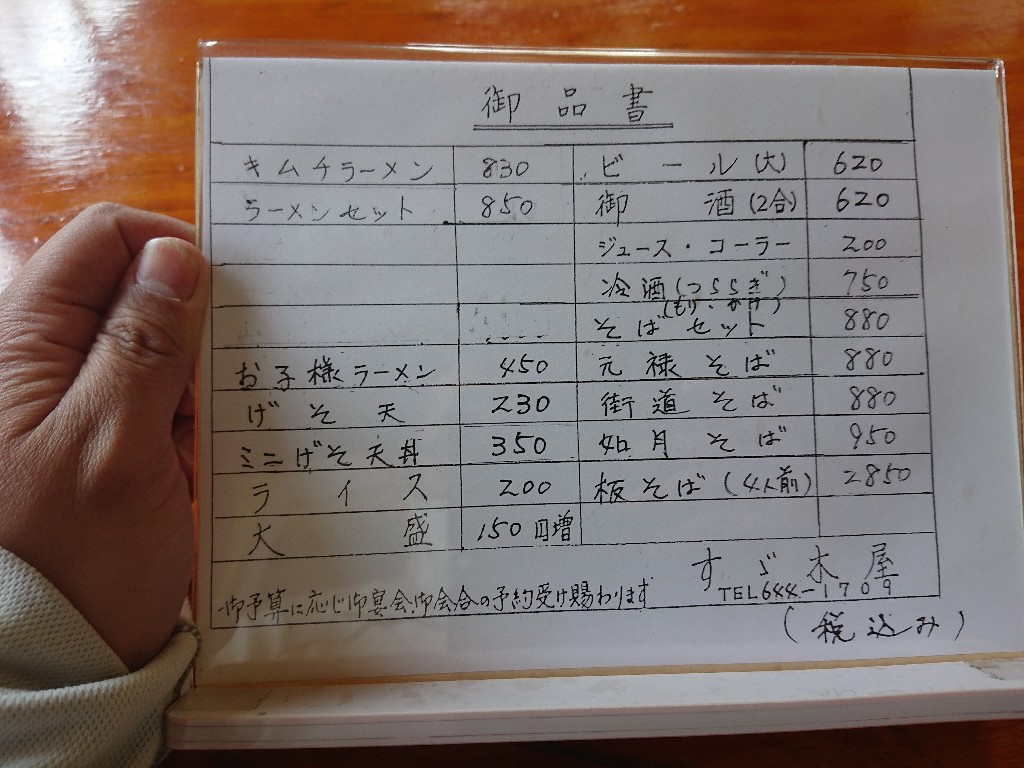 御品書
キムチラーメン 830 ビール(大) 620
ラーメンセット 850 御酒(2合) 620
ジュース・コーラー 200
冷酒(つららぎ) 750
(もり・かけ)
そばセット 880
お子様ラーメン 450 元禄そば 880
げそ天 230 街道そば 880
ミニげそ天丼 350 如月そば 950
ライス 200 板そば(4人前) 2850
大盛 150円増
すゞ木屋
御予算に応じ御宴会、御会合の予約受け賜わります TEL644-1709
(税込み)